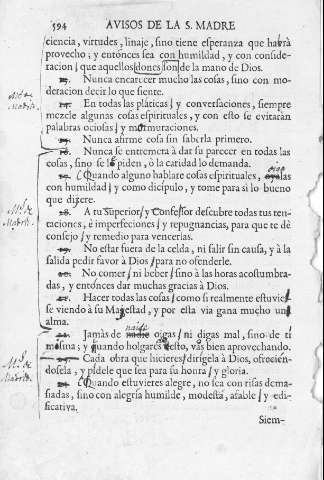 594 AVISOS DE LA S. MADRE
ciencia, virtudes, linaje, sino tiene esperanza que havrà
provecho; y entònces sea con humildad, y con conside-
racion, que aquellos dones son de la mano de Dios.
Nunca encarecer mucho las cosas, sino con mo-
deracion decir lo que siente.
En todas las plàticas, y conversaciones, siempre
mezcle algunas cosas espirituales, y con esto se evitaràn
palabras ociosas, y murmuraciones.
Nunca afirme cosa sin saberla primero.
Nunca se entremeta à dar su parecer en todas las
cosas, sino se lo piden, ò la caridad lo demanda.
Quando alguno hablare cosas espirituales,
con humildad, y como dicipulo, y tome para sì lo bueno
que dixere.
A tu Superior, y Confessor descubre todas tus ten-
taciones, è imperfeciones, y repugnancias, para que te dè
consejo, y remedio para vencerlas.
No estar fuera de la celda, ni salir sin causa, y à la
salida pedir favor à Dios, para no ofenderle.
No comer, ni beber, sino à las horas acostumbra-
das, y entònces dar muchas gracias à Dios.
Hacer todas las cosas, como si realmente estuvies-
se viendo à su Magestad, y por esta via gana mucho un
alma.
Jamàs de nadie oigas, ni digas mal, sino de tì
misma; y quando holgares desto, vàs bien aprovechando.
Cada obra que hicieres, dirigela à Dios, ofrecien-
dosela, y pidele que sea para su honra, y gloria.
Quando estuvieres alegre, no sea con risas dema-
siadas, sino con alegria humilde, modesta, asable, y edi-
ficativa.
Siem-
Ms. de
Madrid.
Ms. de
Madrid.
Ms. de
Madrid.